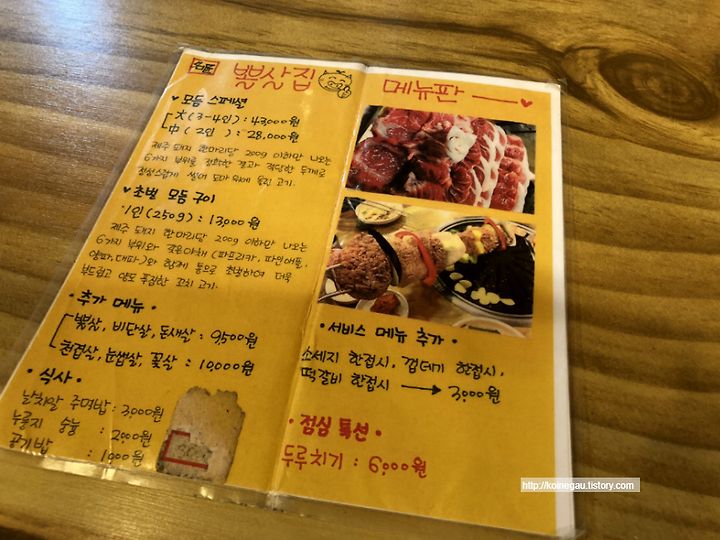 뽈살집
메뉴판
♥ 모듬 스페셜
大(3-4인) : 43,000원
中(2인) : 28,000원
제주 돼지 한마리당 200g 이하만 나오는
6가지 부위로 정확한 결과 적당한 두께로
정성스럽게 썰어 도마위에 올린 고기.
♥ 초벌 모듬 구이
1인(250g) : 13,000원
제주 돼지 한마리당 200g 이하만 나오는
6가지 부위와 갖은야채(파프리카, 파인애플,
양파, 대파)와 함께 통으로 초벌하여 더욱
부드럽고 양도 푸짐한 꼬치 고기.
· 추가 메뉴 ·
뽈살, 비단살, 돈새살 : 9,500원
천겹살, 눈썹살, 꽃살 : 10,000원
· 식사 ·
날치알 주먹밥 : 3,000원
누룽지 숭늉 : 2,000원
공기밥 : 1,000원
· 서비스 메뉴 추가 ·
소세지 한접시, 껍데기 한접시,
떡갈비 한접시 → 3,000원
· 점심 특선 ·
두루치기 : 6,000원
http://koinegau.tistory.com